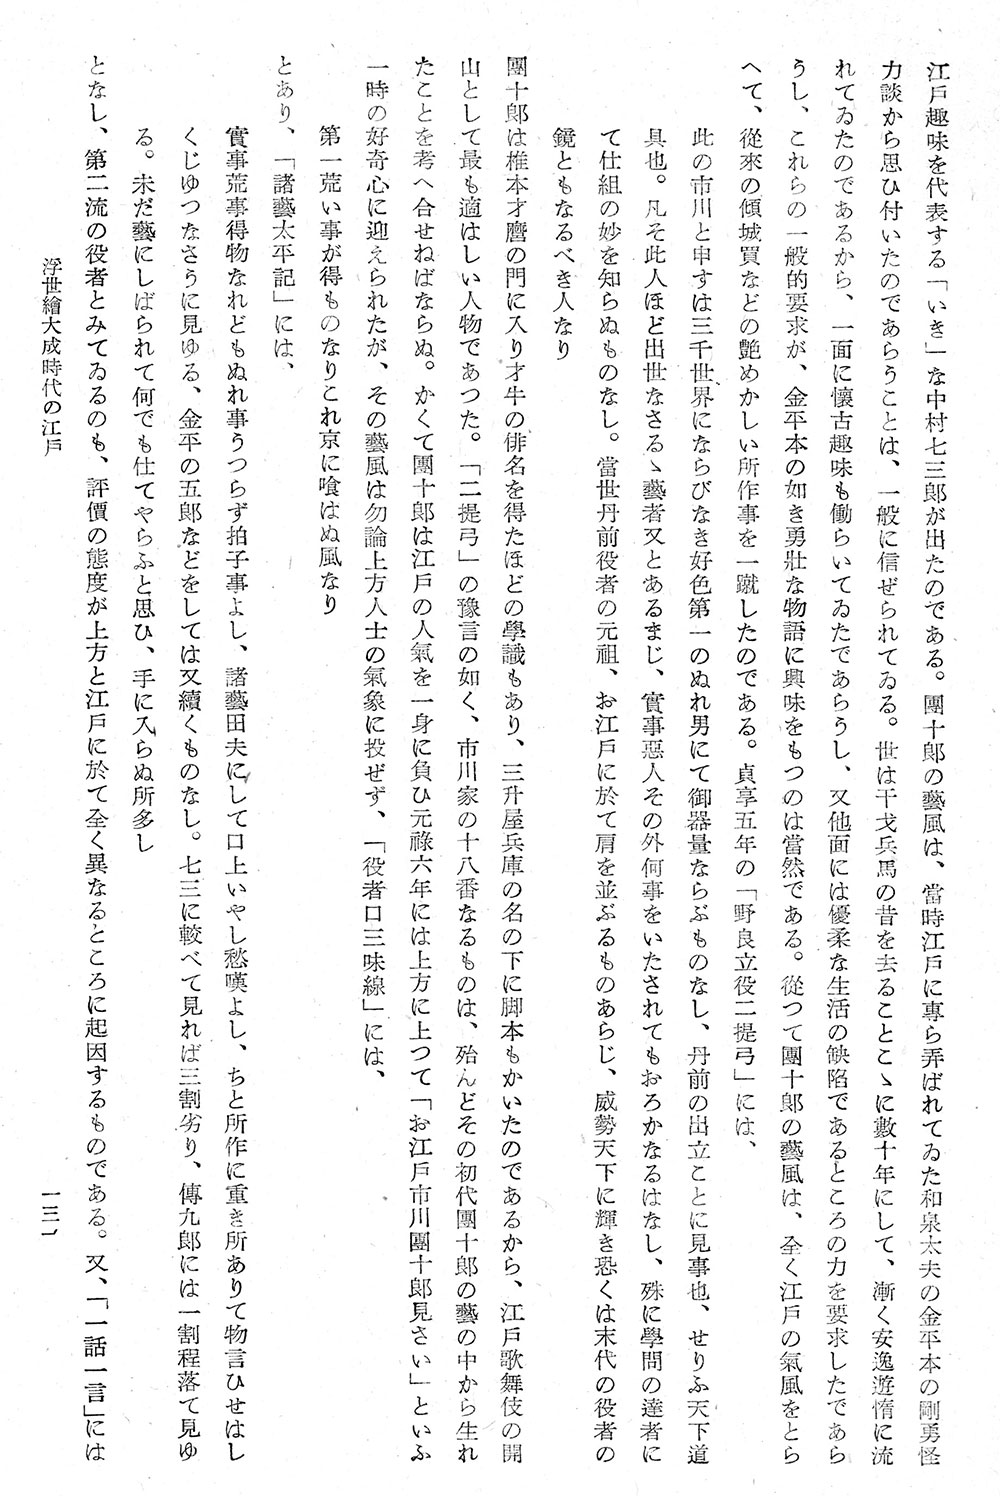 江戸趣味を代表する「いき」な中村七三郎が出たのである。團十郎の藝風は、當時江戸に專ら弄ばれてゐた和泉太夫の金平本の剛勇怪
力談から思ひ付いたのであらうことは、一般に信ぜられてゐる。世は干戈兵馬の昔を去ることこゝに數十年にして、漸く安逸遊惰に流
れてゐたのであるから、一面に懷古趣味も働らいてゐたであらうし、又他面には優柔な生活の缺陷であるところの力を要求したであら
うし、これらの一般的要求が、金平本の如き勇壯な物語に興味をもつのは當然である。從つて團十郎の藝風は、全く江戸の氣風をとら
へて、從來の傾城買などの艷めかしい所作事を一蹴したのである。貞享五年の「野良立役二提弓」には、
此の市川と申すは三千世界にならびなき好色第一のぬれ男にて御器量ならぶものなし、丹前の出立ことに見事也、せりふ天下道
具也。凡そ此人ほど出世なさるゝ藝者又とあるまじ、實事惡人その外何事をいたされてもおろかなるはなし、殊に學問の達者に
て仕組の妙を知らぬものなし。當世丹前役者の元祖、お江戸に於て肩を並ぶるものあらじ、威勢天下に輝き恐くは末代の役者の
鏡ともなるべき人なり
團十郎は椎本才麿の門に入り才牛の俳名を得たほどの學識もあり、三升屋兵庫の名の下に脚本もかいたのであるから、江戸歌舞伎の開
山として最も適はしい人物であつた。「二提弓」の豫言の如く、市川家の十八番なるものは、殆んどその初代團十郎の藝の中から生れ
たことを考へ合せねばならぬ。かくて團十郎は江戸の人氣を一身に負ひ元祿六年には上方に上つて「お江戸市川團十郎見さい」といふ
一時の好奇心に迎えられたが、その藝風は勿論上方人士の氣象に投ぜず、「役者口三味線」には、
第一荒い事が得ものなりこれ京に喰はぬ風なり
とあり、「諸藝太平記」には、
實事荒事得物なれどもぬれ事うつらず拍子事よし、諸藝田夫にして口上いやし愁嘆よし、ちと所作に重き所ありて物言ひせはし
くじゆつなさうに見ゆる、金平の五郎などをしては又續くものなし。七三に較べて見れば三割劣り、傳九郎には一割程落て見ゆ
る。未だ藝にしばられて何でも仕てやらふと思ひ、手に入らぬ所多し
となし、第二流の役者とみてゐるのも、評價の態度が上方と江戸に於て全く異なるところに起因するものである。又、「一話一言」には
浮世繪大成時代の江戸
一三